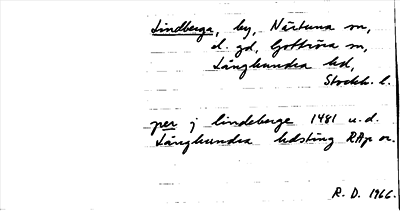 Lindberga, by, Närtuna sn,
d. gd, Gottröra sn,
Långhundra hd,
Stockh. l.
per j lindeberge 1481 u.d.
Långhundra hdsting RAp or.
R. D. 1966.